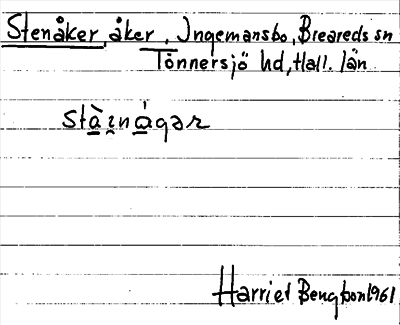 Stenåker, åker, Ingemansbo, Breareds sn
Tönnersjö hd, Hall. län
stà̠ı̯ná̠gər
Harriet Bengtson 1961